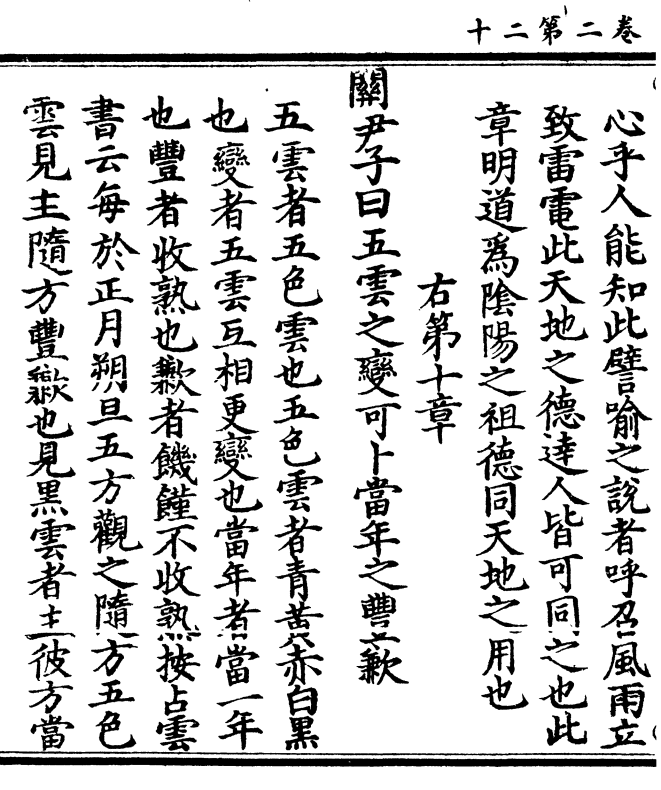 卷二第二十
心乎人能知此譬喻之說者呼召風雨立
致雷電此天地之德達人皆可同之也此
章明道爲陰陽之祖德同天地之用也
右第十章
關尹子曰五雲之變可卜當年之豐歉
五雲者五色雲也五色雲者青黃赤白黑
也變者五雲互相更變也當年者當一年
也豐者收熟也歉者饑饉不收熟按占雲
書云每於正月朔旦五方觀之隨方五色
雲見主隨方豐歉也見黑雲者主彼方當